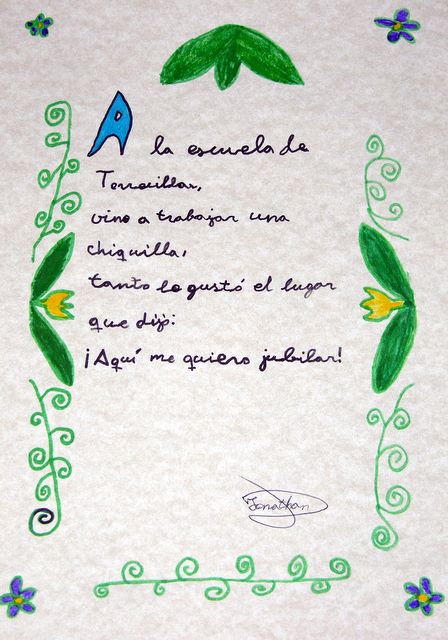 A la escuela de
vino a trabajar una
chiquilla,
tanto le gustó el lugar
que dijo:
¡Aquí me quiero jubilar!
Jonathan